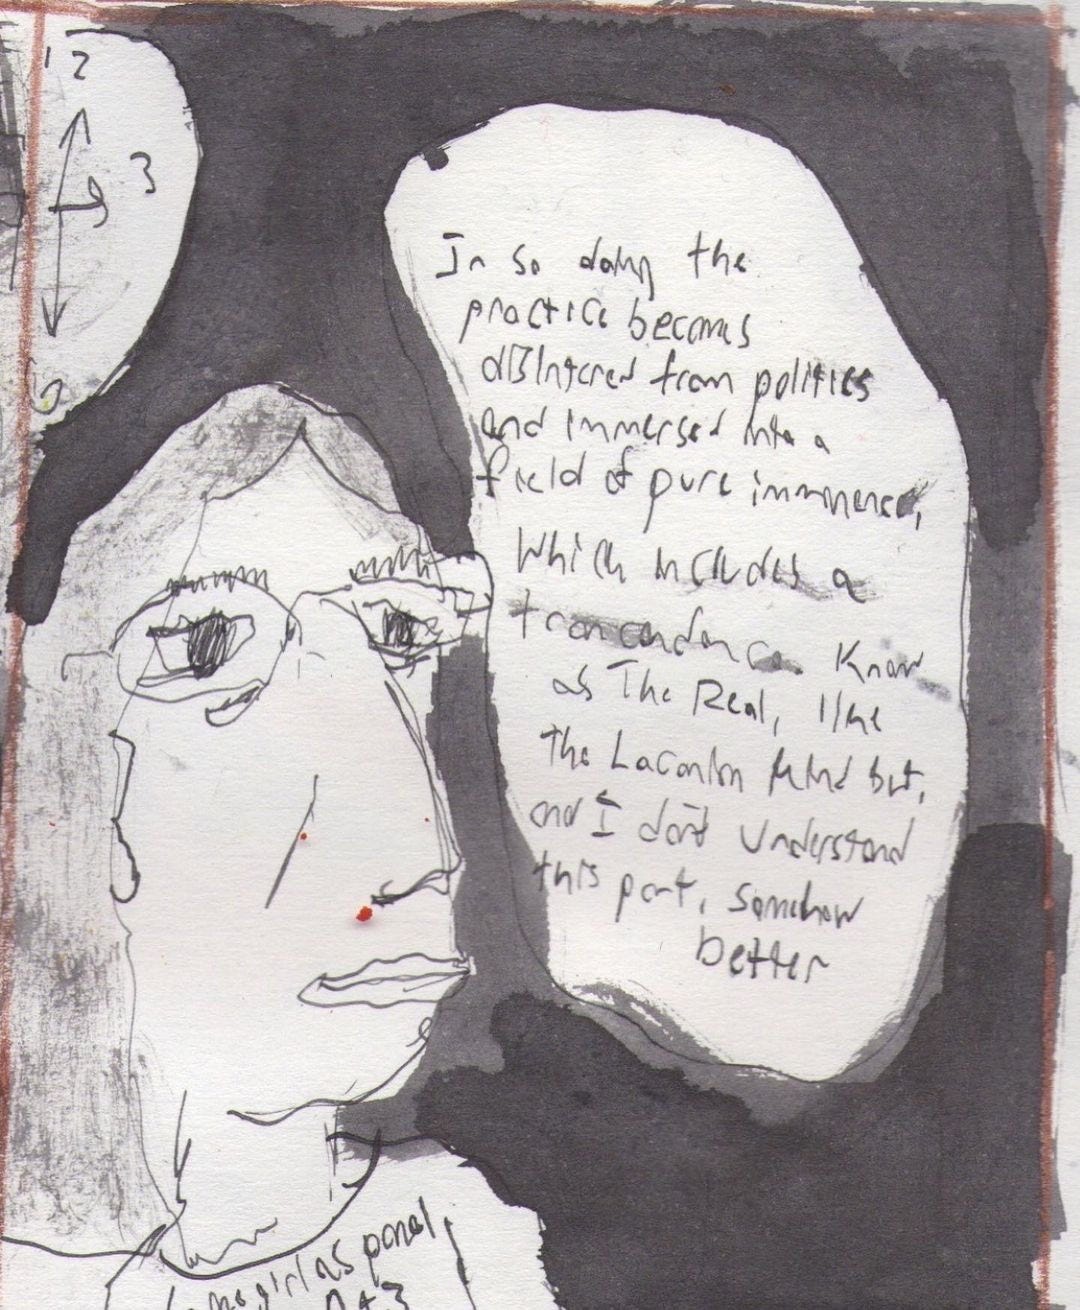 12
3
6
In so doing the
practice becomes
disintered from politics
and immersed into a
field of pure immanence,
which includes a
trancendence known
as The Real, like
the Laconian kind but,
and I don't understand
this part, somehow
better
girl as panel